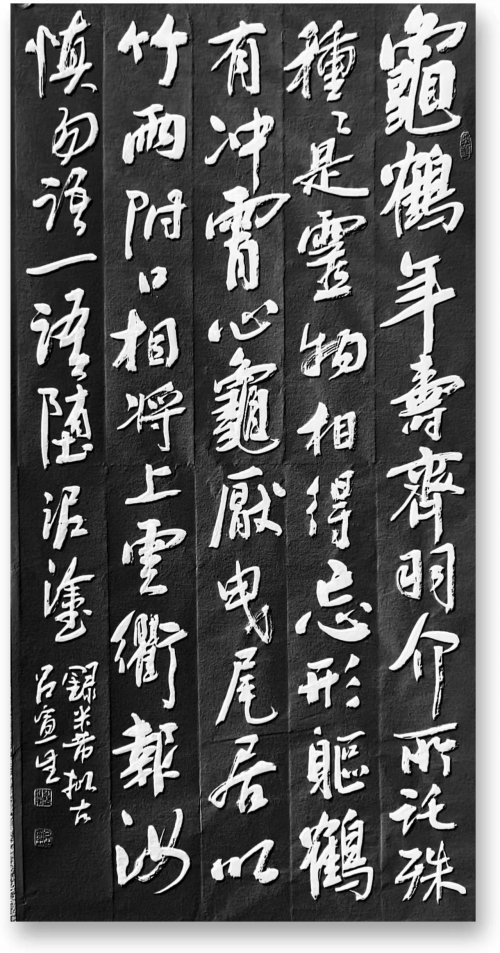 龜鶴年壽齊羽介所託殊
種〻是靈物相得忘形軀鶴
有冲霄心龜厭曳尾居以
竹兩附口相將上雲衢報汝
慎勿語一語墮泥塗
録米芾拟古
吕宣生